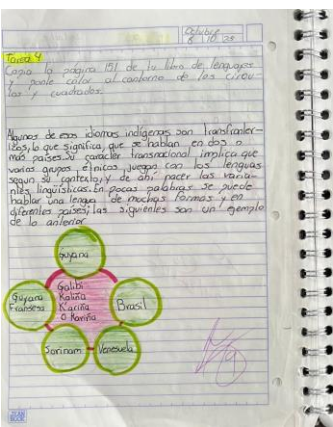 Octubre
8 10 25
Tarea 4
Copia la página 151 de tu libro de lenguajes
y ponle color al contorno de los círcu
los y cuadrados.
Algunos de esos idiomas indígenas son transfronter-
izos, lo que significa, que se hablan en dos o
más países. Su carácter transnacional implica que
varios grupos étnicos juegan con las lenguas
según su contexto, y de ahí nacer las varia-
ntes lingüísticas. En pocas palabras se puede
hablar una lengua de muchas formas y en
diferentes países, las siguientes son un ejemplo
de lo anterior.
Guyana
Guyana
Francesa
Galibi
Kaliña
Kariña
o Kariña
Brasil
Surinam
Venezuela